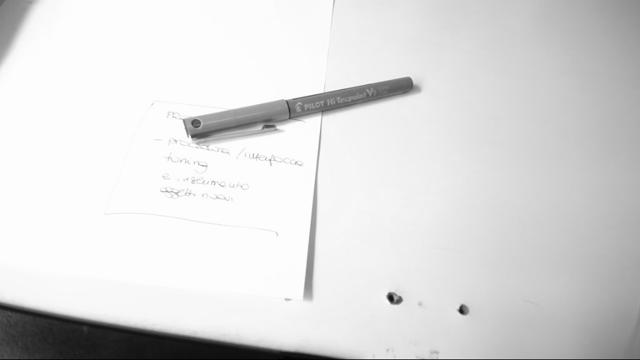 PILOT Hi-Tecpoint V5
- procedura / interfaccia
tuning
e inserimento
oggetti nuovi